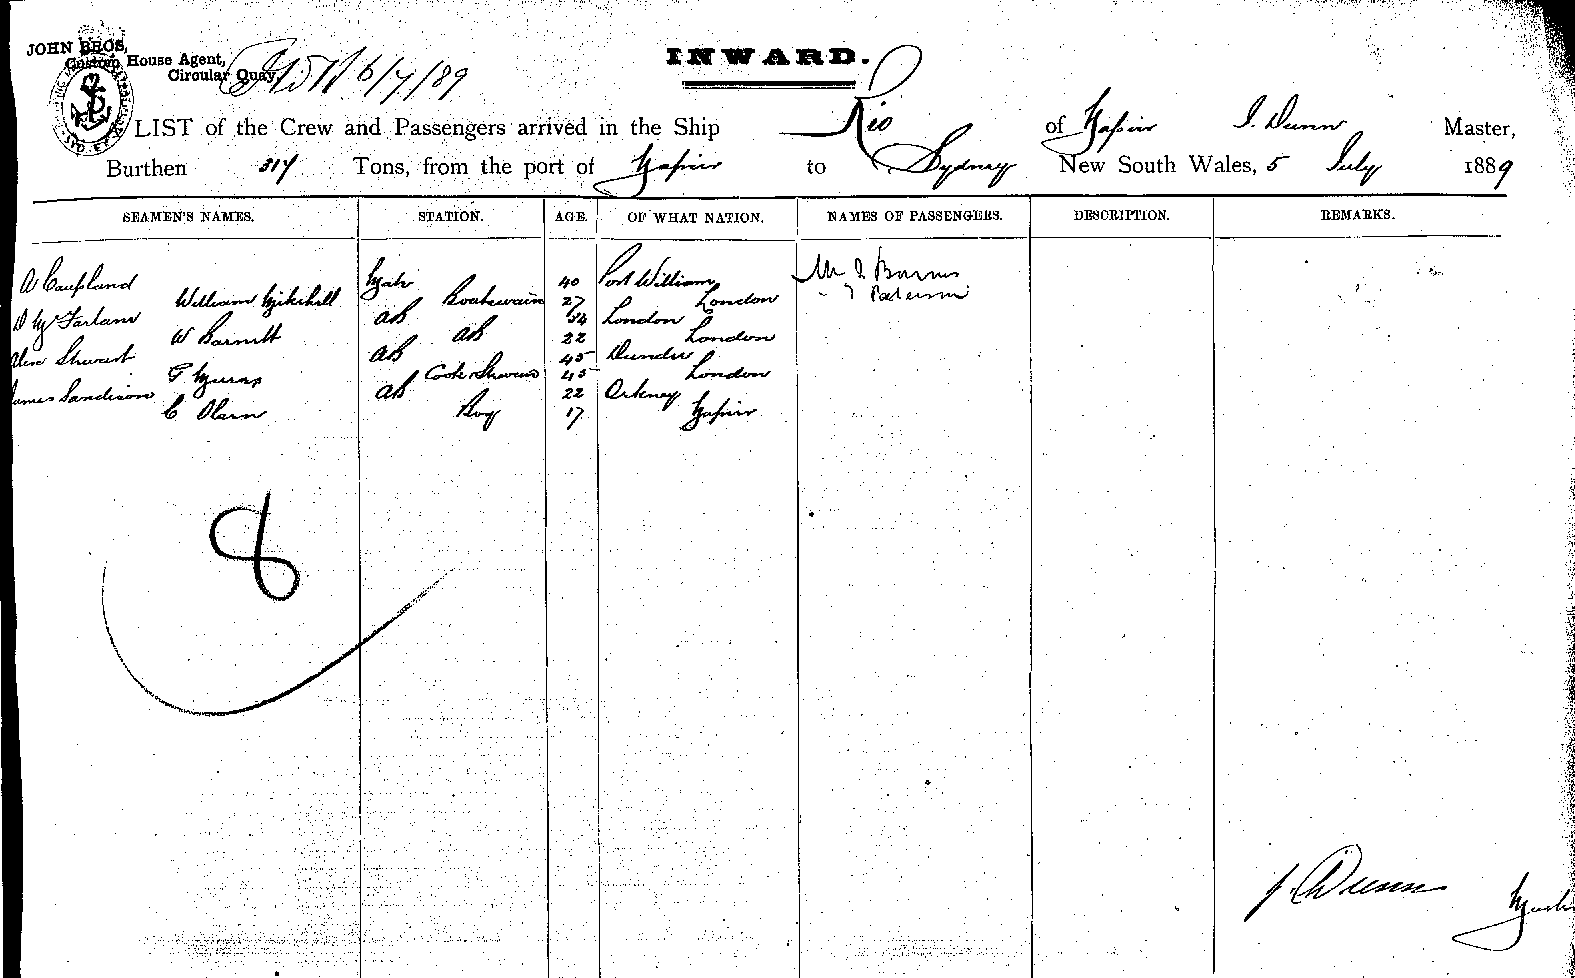 JOHN BROS,
Custom House Agent,
Circular Quay
6/7/89
INWARD.
LIST of the Crew and Passengers arrived in the Ship Rio of Napier J. Dunn Master,
Burthen Tons, from the port of Napier to Sydney New South Wales, 5 July 1889
SEAMEN'S NAMES. STATION. AGE. OF WHAT NATION. NAMES OF PASSENGERS. DESCRIPTION. REMARKS.
A Caupland Mate 40 Port William Mr J Barnes
William Boatswain 27 London Paterson
D McFarlane AB 54 London
W Barnett AB 22 London
Alex Stewart AB 45 Dundee
Cook & Steward 45 London
James Sandison AB 22 Orkney
C Olsen Boy 17 Napier
8
J. Dunn